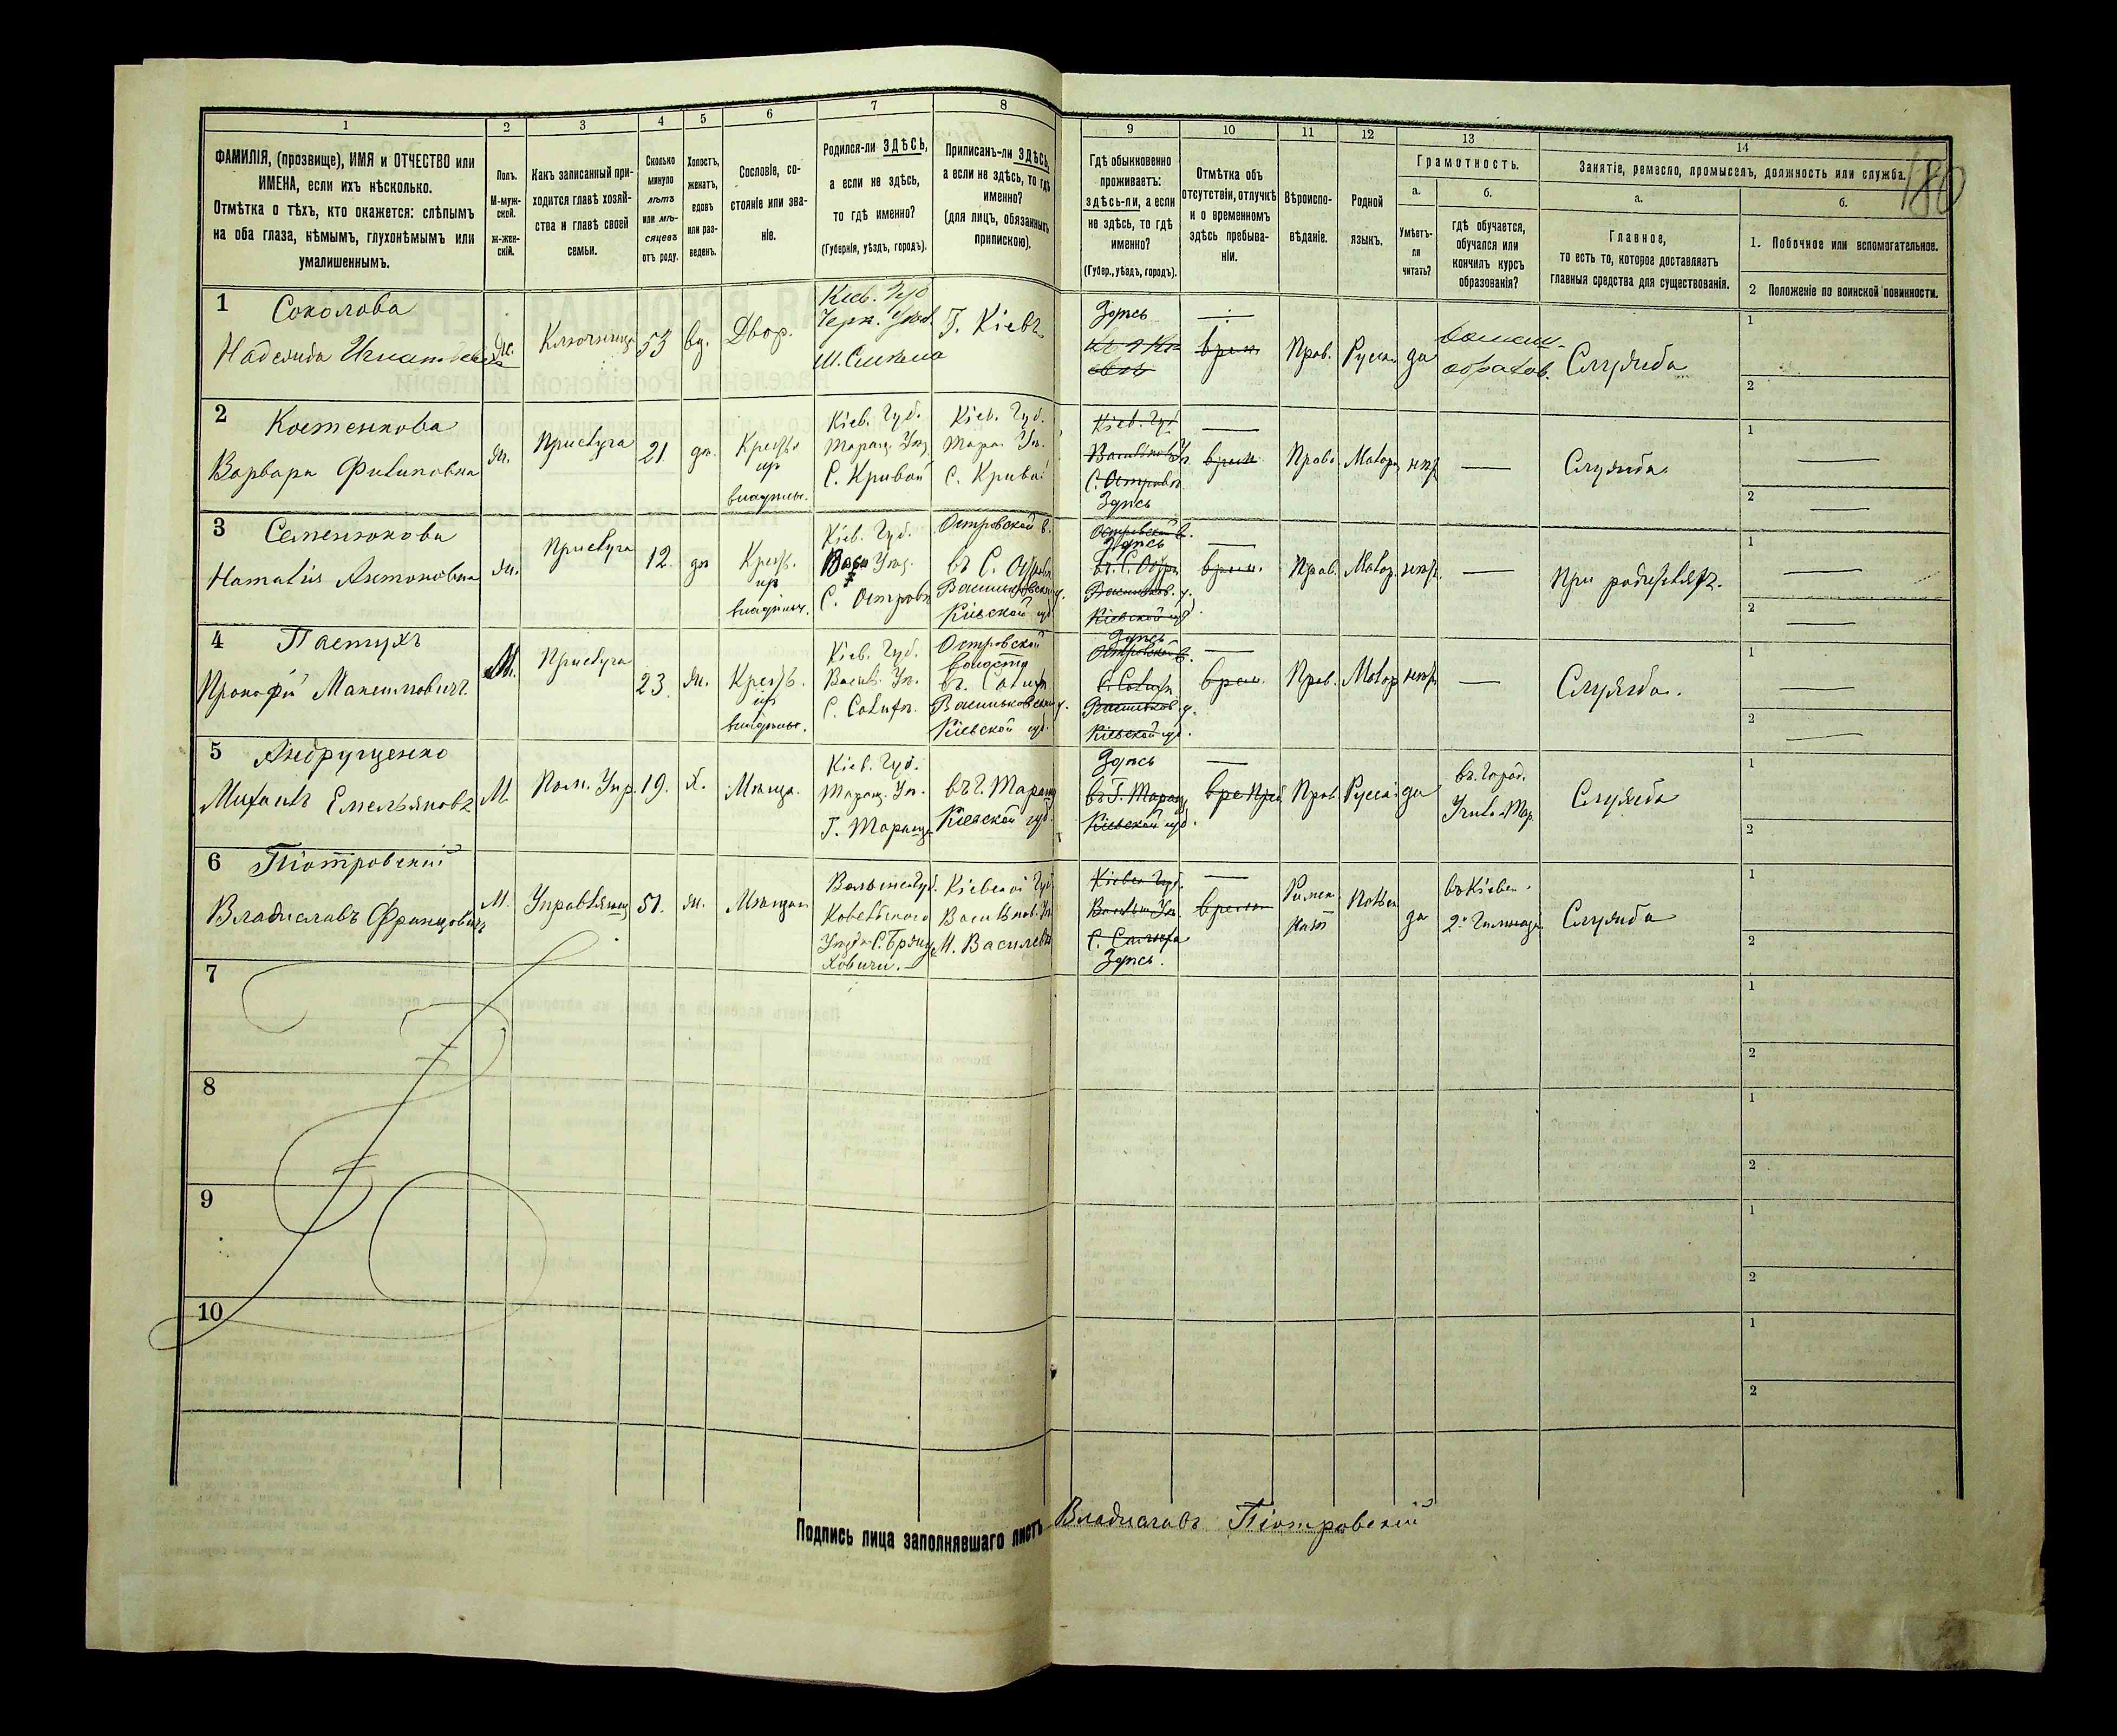 180
1
2
3
4
5
6
7
8
9
10
11
12
13
14
ФАМИЛІЯ, (прозвище), ИМЯ и ОТЧЕСТВО или
ИМЕНА, если ихъ нѣсколько.
Отмѣтка о тѣхъ, кто окажется: слѣпымъ
на оба глаза, нѣмымъ, глухонѣмымъ или
умалишеннымъ.
Полъ.
М-муж-
ской.
ж-жен-
скій.
Какъ записанный при-
ходится главѣ хозяй-
ства и главѣ своей
семьи.
Сколько
минуло
лѣтъ
или мѣ-
сяцевъ
отъ роду.
Холостъ,
женатъ,
вдовъ
или раз-
веденъ.
Сословіе, со-
стояніе или зва-
ніе.
Родился-ли ЗДѢСЬ,
а если не здѣсь,
то гдѣ именно?
(Губернія, уѣздъ, городъ).
Приписанъ-ли ЗДѢСЬ,
а если не здѣсь, то гдѣ
именно?
(для лицъ, обязанныхъ
припискою).
Гдѣ обыкновенно
проживаетъ:
здѣсь-ли, а если
не здѣсь, то гдѣ
именно?
(Губер., уѣздъ, городъ).
Отмѣтка объ
отсутствіи, отлучкѣ
и о временномъ
здѣсь пребыва-
ніи.
Вѣроиспо-
вѣданіе.
Родной
языкъ.
Грамотность.
а.
Умѣетъ-
ли
читать?
б.
гдѣ обучается,
обучался или
кончилъ курсъ
образованія?
Занятіе, ремесло, промыселъ, должность или служба.
а.
Главное,
то есть то, которое доставляетъ
главныя средства для существованія.
б.
1. Побочное или вспомогательное.
2 Положеніе по воинской повинности.
1
Соколова
Надежда
Ж.
Ключница
53
вд.
Двор.
Кіев. Губ
Черк. Уѣзд.
М. Смѣла
Г. Кіевъ
Здѣсь
врем.
Прав.
Русск.
да
образов.
Служба
1
2
2
Костенкова
Варвара Филиповна
ж.
Прислуга
21.
дѣ.
Кіев. Губ.
Таращ. Уѣз.
С. Кривой
Кіев. Губ.
Тара. Уѣ.
С. Крива
Кіев. Губ
Васильков. Уѣ.
С. Островъ
Здѣсь
врем
Право.
Малор.
нѣтъ
Служба
1
2
3
Семенюкова
Наталія Антоновна
ж.
Прислуга
12.
дѣ
Кіев. Губ.
Васи Уѣз.
С. Островъ
Островской в.
въ С.
Васильковскаго у.
Кіевской губ.
Островской в.
Здѣсь
въ С.
Васильков. у.
Кіевской губ.
врем.
Прав.
Малор.
нѣтъ.
При родителяхъ.
1
2
4
Пастухъ
Прокофій Максимовичъ
М.
Прислуга
23.
ж.
Кіев. Губ.
Васильк. Уѣ.
Островской
волости
Васильковскаго у.
Кіевской губ.
Здѣсь
Островской в.
Васильков. у.
Кіевской губ.
врем.
Прав.
Малор
нѣтъ
Служба.
1
2
5
Андрущенко
Михаилъ Емельяновъ
М
Пом. Упр.
19.
х.
Мѣща.
Кіев. Губ.
Таращ. Уѣ.
Г. Тараща
въ Г. Таращѣ
Кіевской губ.
Здѣсь
въ Г. Таращѣ
Кіевской губ.
Прав
Русск.
да
въ Город.
Служба
1
2
6
Піотровскій
Владиславъ Францовичъ
М.
Управляющ
51.
ж.
Мѣщан
Волынск. Губ.
Ковельскаго
Кіевской Губ
Васильков. Уѣ
Кіевск Губ.
Васильк. Уѣ.
Здѣсь.
времен
Римск
Кат
Польск
да
въ Кіевск.
2й Гимназіи
Служба
1
2
7
1
2
8
1
2
9
1
2
10
1
2
Подпись лица заполнявшаго листъ
Владиславъ Піотровскій